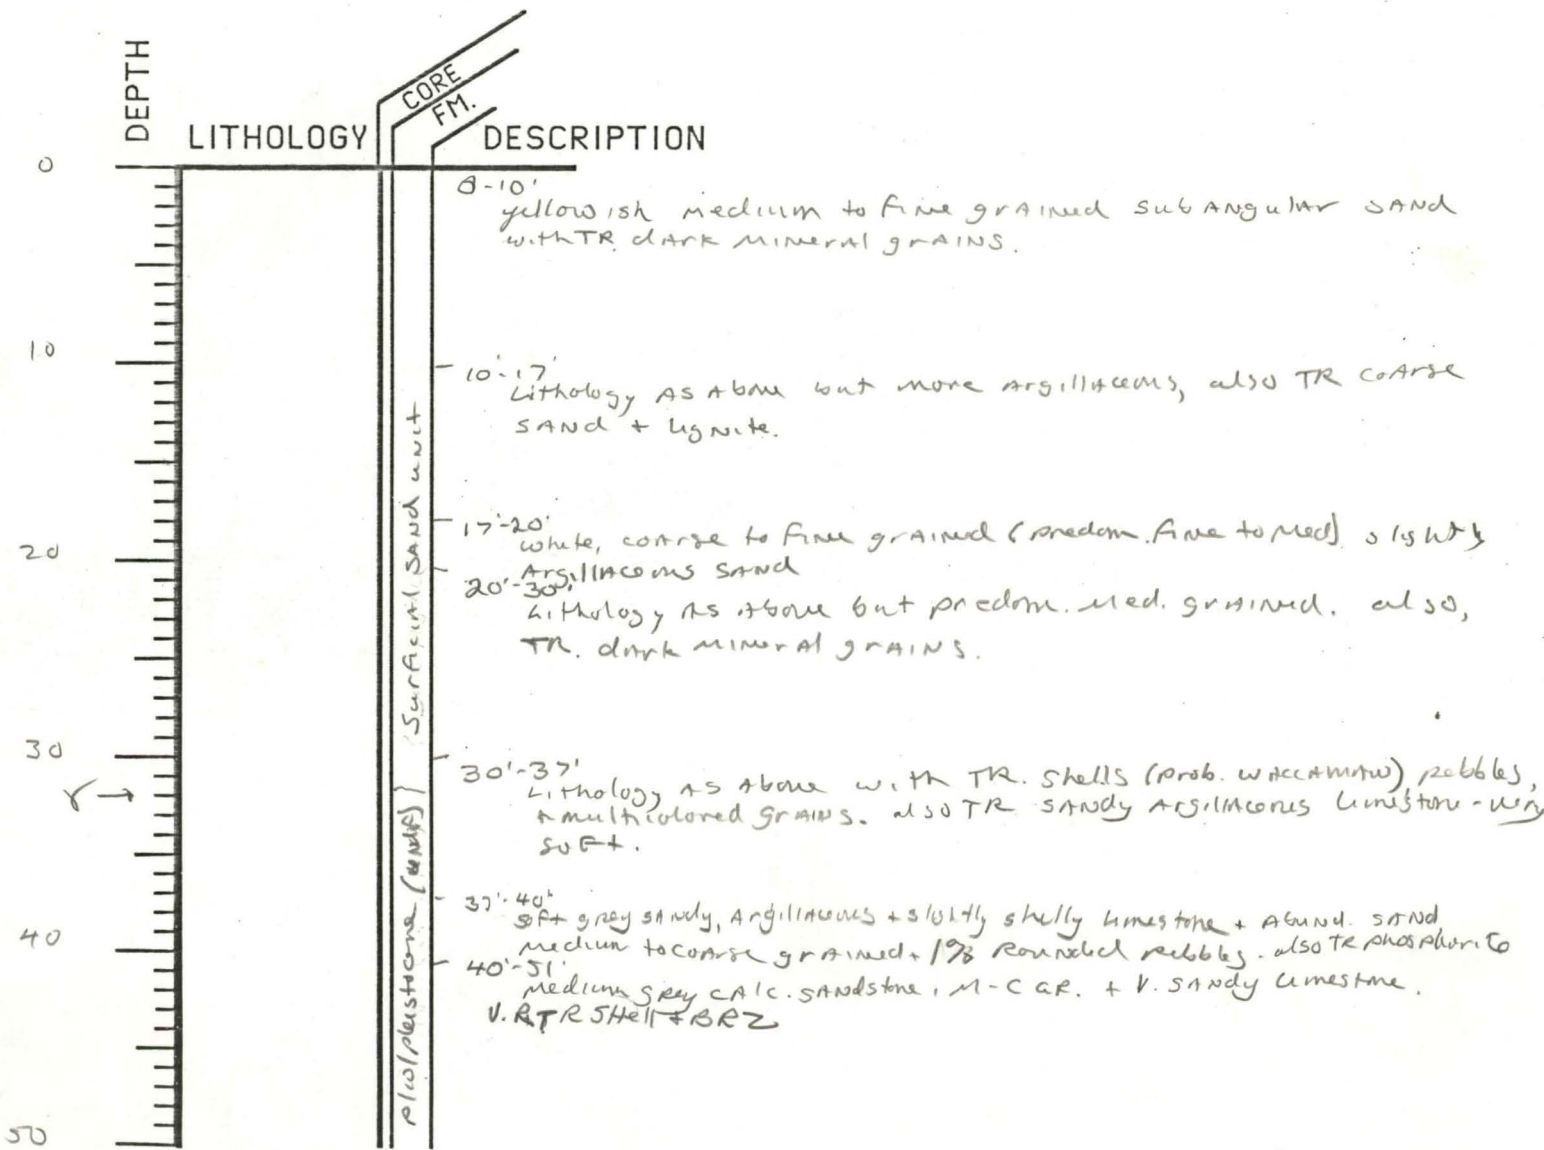 DEPTH
LITHOLOGY
CORE
FM.
DESCRIPTION
0
10
20
30
40
50
Surficial SAND unit
plio/pleistocene (undif)
0-10'
yellowish medium to fine grained subangular SAND
with TR dark mineral grains.
10'-17'
Lithology As Above but more Argillaceous, also TR coarse
SAND + lignite.
17'-20'
white, coarse to fine grained (predom. fine to Med) slightly
Argillaceous SAND
20'-30'
Lithology As Above but predom. Med. grained. also,
TR. dark mineral grains.
30'-37'
Lithology As Above with TR. shells (prob. WACCAMAW) pebbles,
+ multicolored grains. also TR SANDY Argillaceous limestone - very
soft.
37'-40'
soft grey sandy, Argillaceous + slightly shelly limestone + Abund. SAND
medium to coarse grained + 1% Rounded pebbles. also TR phosphorite
40'-51'
medium grey CAlc. SANDstone, M-C GR. + V. SANDY limestone.
V. R TR SHell + BRZ